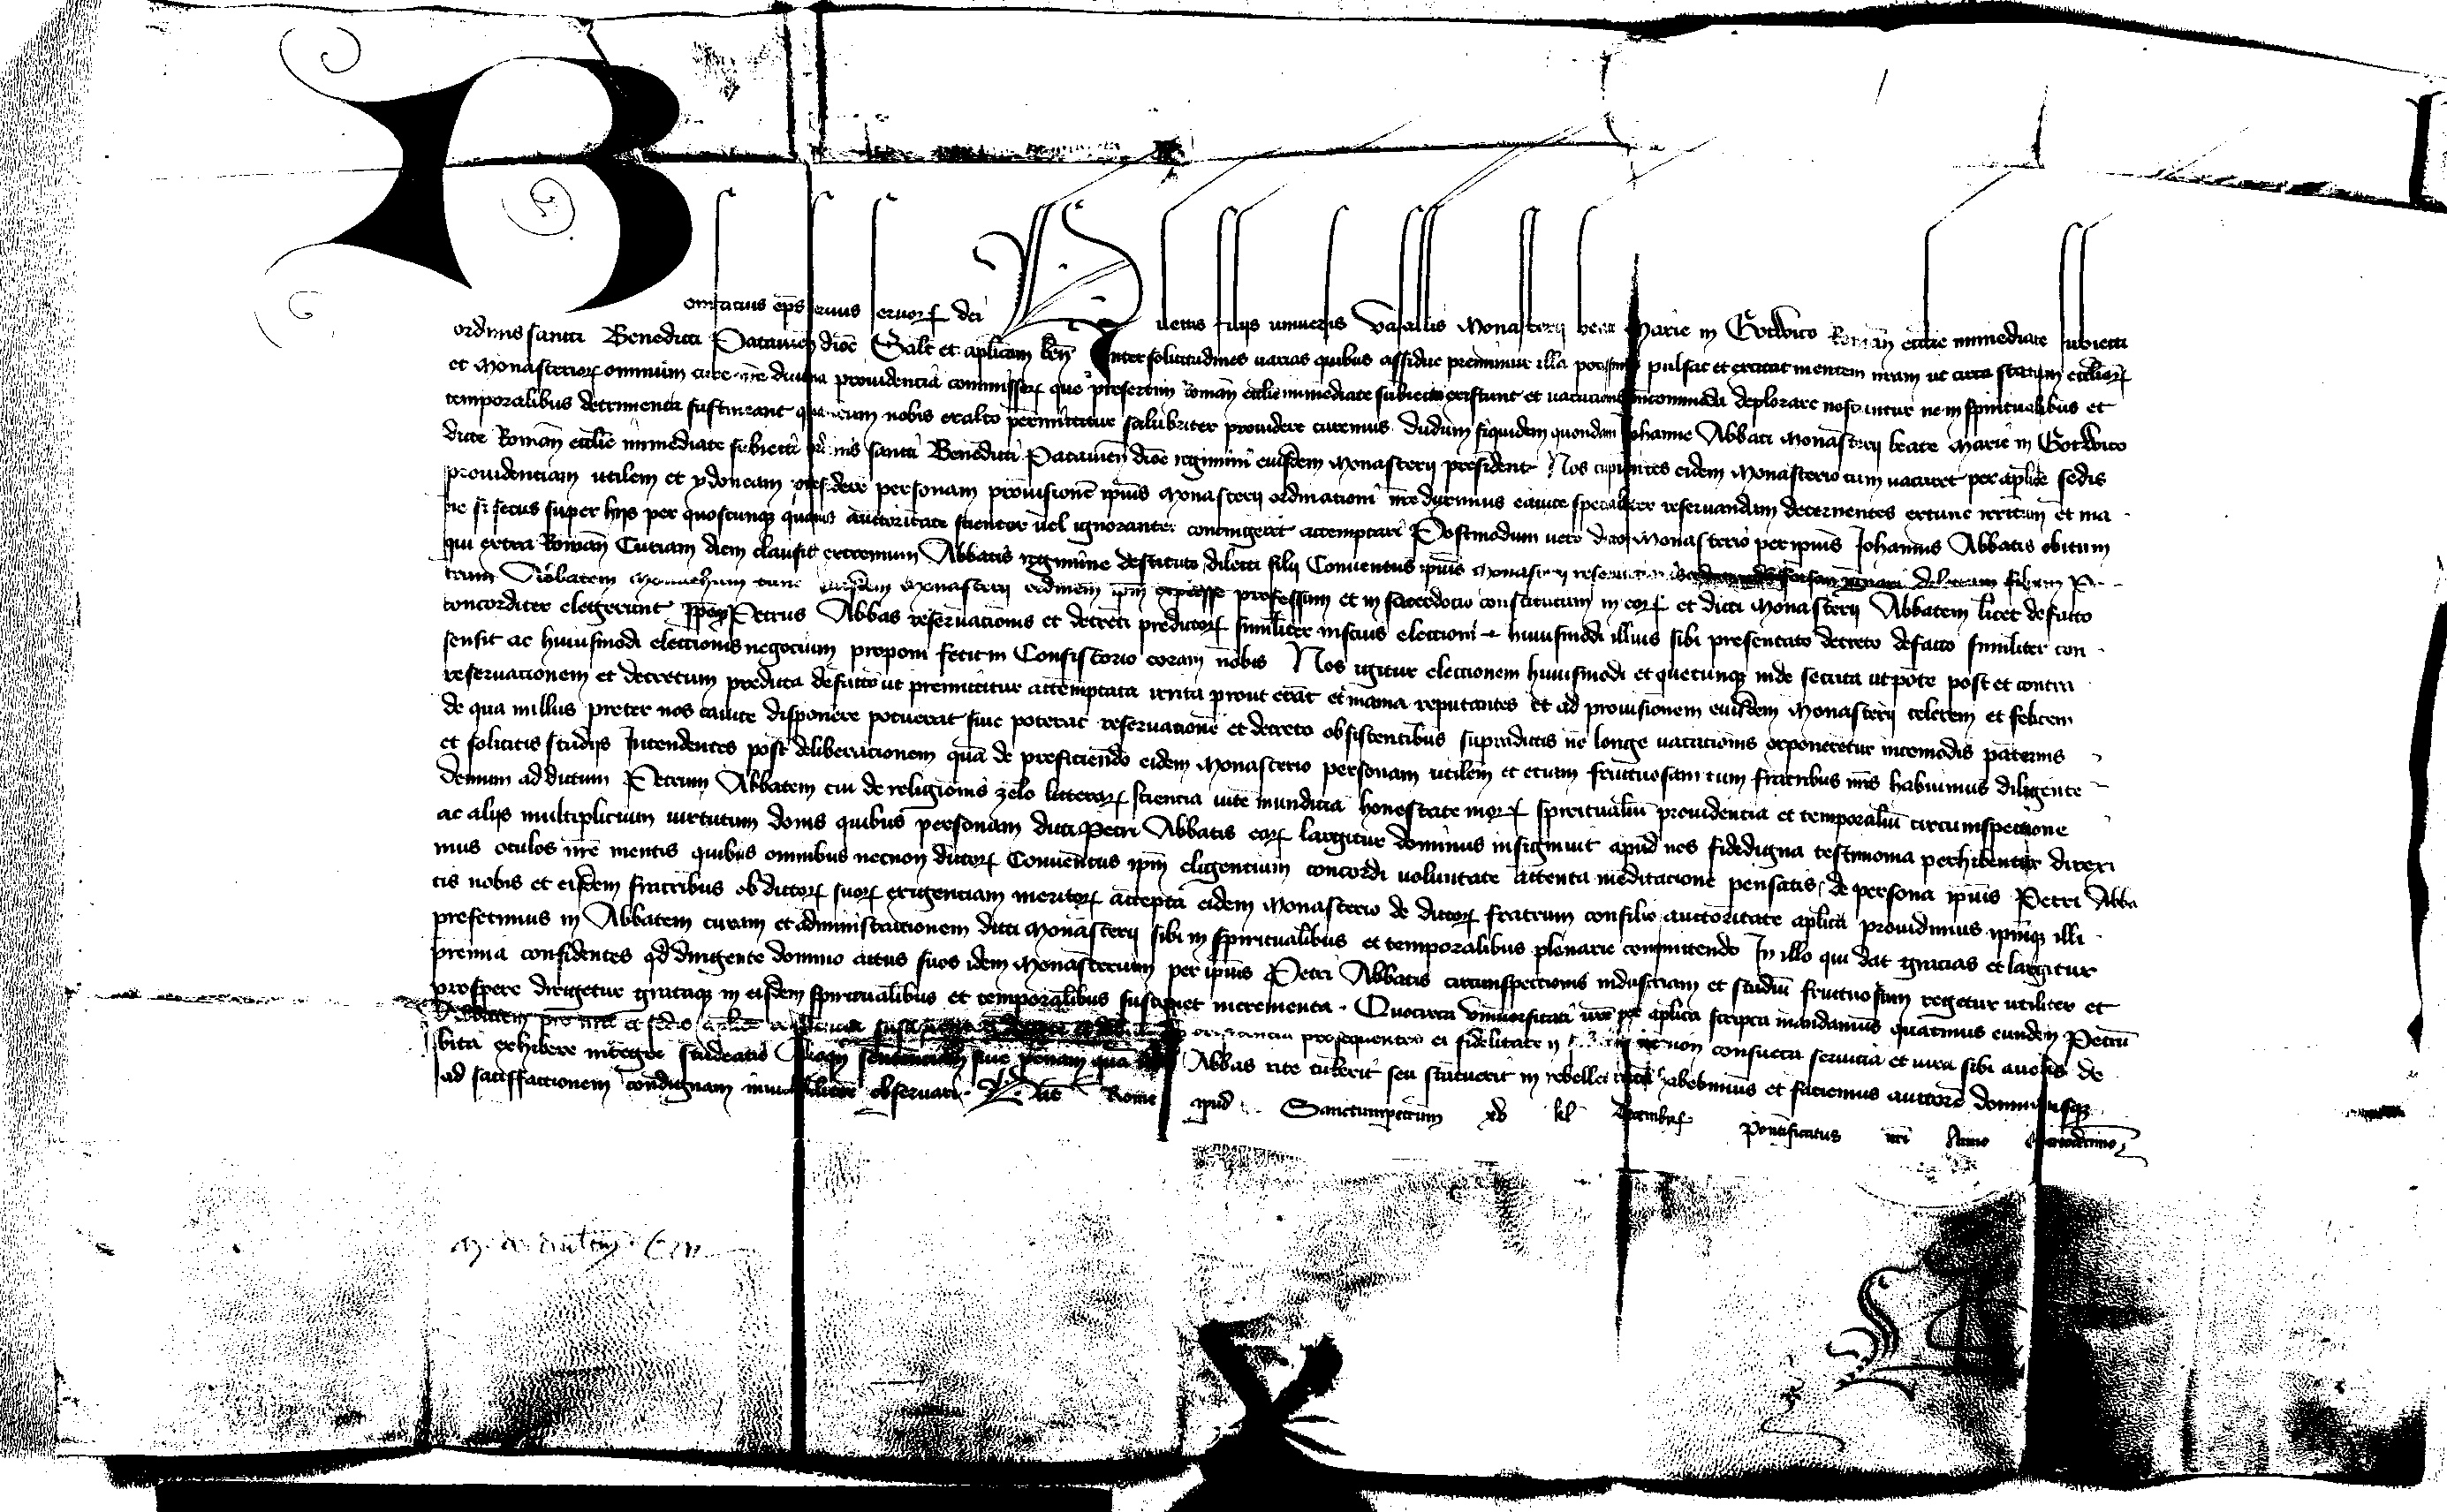 Bonifacius eps servus servorꝝ dei Dilectis filijs universis Vasallis Monasterij beate Marie in Gotwico Roman ecclie immediate subiecti
ordinis sancti Benedicti Patavien dioc Salt et aplicam ben Inter solicitudines varias quibus assidue premimur illa potissime pulsat et excitat mentem nram ut circa statum eccliarꝝ
et Monasteriorꝝ omnium cure nre divina providencia commissorꝝ que presertim Roman ecclie immediate subiecta existunt et vacationis incommoda deplorare noscuntur ne in spiritualibus et
temporalibus detrimenta sustineant quantum nobis ex alto permittitur salubriter providere curemus dudum siquidem quondam Johanne Abbati Monasterij beate Marie in Gotwico
dicte Roman ecclie immediate subiecti ordinis sancti Benedicti Patavien dioc regimini eiusdem Monasterij presidente Nos cupientes eidem Monasterio cum vacaret per aplice sedis
providenciam utilem et ydoneam presidere personam provisione ipius Monasterij ordinationi nre duximus ea vice specialiter reservandam decernentes extunc irritum et ina
ne si secus super hijs per quoscunqꝫ quavis auctoritate scienter vel ignoranter contingeret attemptari Postmodum vero dicto Monasterio per ipius Johannis Abbatis obitum
qui extra Roman Curiam diem clausit extremum Abbatis regimine destituto dilecti filij Conventus ipius Monasterij dilectum filium Pe
trum Abbatem Monachum tunc eiusdem Monasterij ordinem ipm expresse professum et in sacerdocio constitutum in eorꝝ et dicti Monasterij Abbatem licet de facto
concorditer elegerunt Ipeqꝫ Petrus Abbas reservationis et decreti predictorꝝ similiter inscius electioni huiusmodi illius sibi presentato decreto defacto similiter con
sensit ac huiusmodi electionis negocium proponi fecit in Consistorio coram nobis Nos igitur electionem huiusmodi et quecunqꝫ inde secuta utpote post et contra
reservationem et decretum predicta defacto ut premittitur attemptata irrita prout erat et inania reputantes et ad provisionem eiusdem Monasterij celerem et felicem
de qua nullus preter nos ea vice disponere potuerat sive poterat reservatione et decreto obsistentibus supradictis ne longe vacationis exponeretur incomodis paternis
et solicitis studijs Intendentes post deliberationem quā de preficiendo eidem Monasterio personam utilem et etiam fructuosam cum fratribus nris habuimus diligente
demum ad dictum Petrum Abbatem cui de religionis zelo litterarꝝ sciencia vite mundicia honestate morꝝ spiritualiū providencia et temporaliū circumspectione
ac alijs multiplicium virtutum donis quibus personam dicti Petri Abbatis eorꝝ largitor dominus insignivit apud nos fidedigna testimonia perhibentur direxi
mus oculos nre mentis quibus omnibus necnon dictorꝝ Conventus ipm eligentium concordi voluntate attenta meditacione pensatis de persona ipius Petri Abba
tis nobis et eisdem fratribus ob dictorꝝ suorꝝ exigenciam meritorꝝ accepta eidem Monasterio de dictorꝝ fratrum consilio auctoritate aplica providimus ipmqꝫ illi
prefecimus in Abbatem curam et administrationem dicti Monasterij sibi in spiritualibus et temporalibus plenarie committendo In illo qui dat gracias et largitur
premia confidentes qd dirigente domino actus suos idem Monasterium per ipius Petri Abbatis circumspectionis industriam et studiū fructuosum regetur utiliter et
prospere dirigetur grataqꝫ in eisdem spiritualibus et temporalibus suscipiet incrementa. Quocirca Universitati vre per aplica scripta mandamus quatinus eundem Petrū
Abbatem pro nra et sedis aplice prosequentes ei fidelitatem necnon consueta servitia et iura sibi a vobis de
bita exhibere integre studeatis Alioqn sententiam sive penam quā Abbas rite tulerit seu statuerit in rebelles ratam habebimus et faciemus auctore domino usqꝫ
ad satisfactionem condignam inviolabiliter observari. Dat Rome apud Sanctumpetrum xv kl Decembrꝝ Pontificatus nri Anno